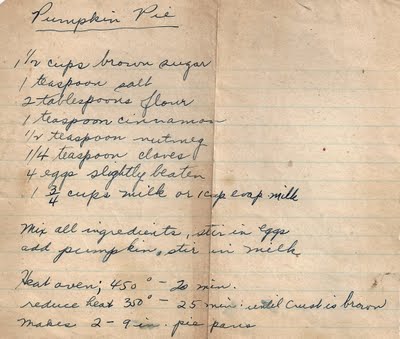 Pumpkin Pie
1 1/2 cups brown sugar
1 teaspoon salt
2 tablespoons flour
1 teaspoon cinnamon
1/2 teaspoon nutmeg
1/4 teaspoon cloves
4 eggs slightly beaten
1 3/4 cups milk or 1 cup evap milk
Mix all ingredients, stir in eggs
add pumpkin, stir in milk.
Heat oven; 450° - 20 min.
reduce heat 350° - 25 min. until crust is brown
makes 2 - 9 in. pie pans